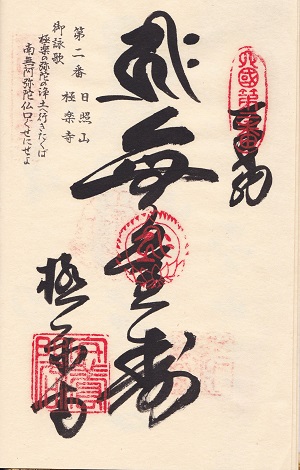 奉納
無量寿
極楽寺
第二番 日照山 極楽寺
御詠歌
極楽の弥陀の浄土へ行きたくば
南無阿弥陀仏口ぐせにせよ